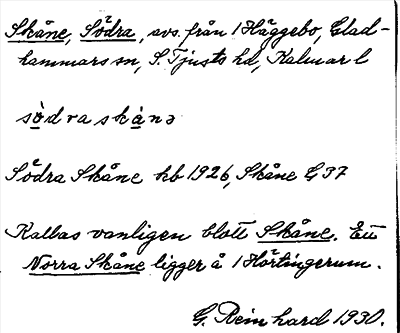 Skåne, Södra, avs. från 1 Häggebo, Glad-
hammars sn, S. Tjusts hd, Kalmar l
södra skånə
Södra Skåne kb 1926, Skåne G 37
Kallas vanligen blott Skåne. Ett
Norra Skåne ligger å 1 Hörtingerum.
G. Reinhard 1930.